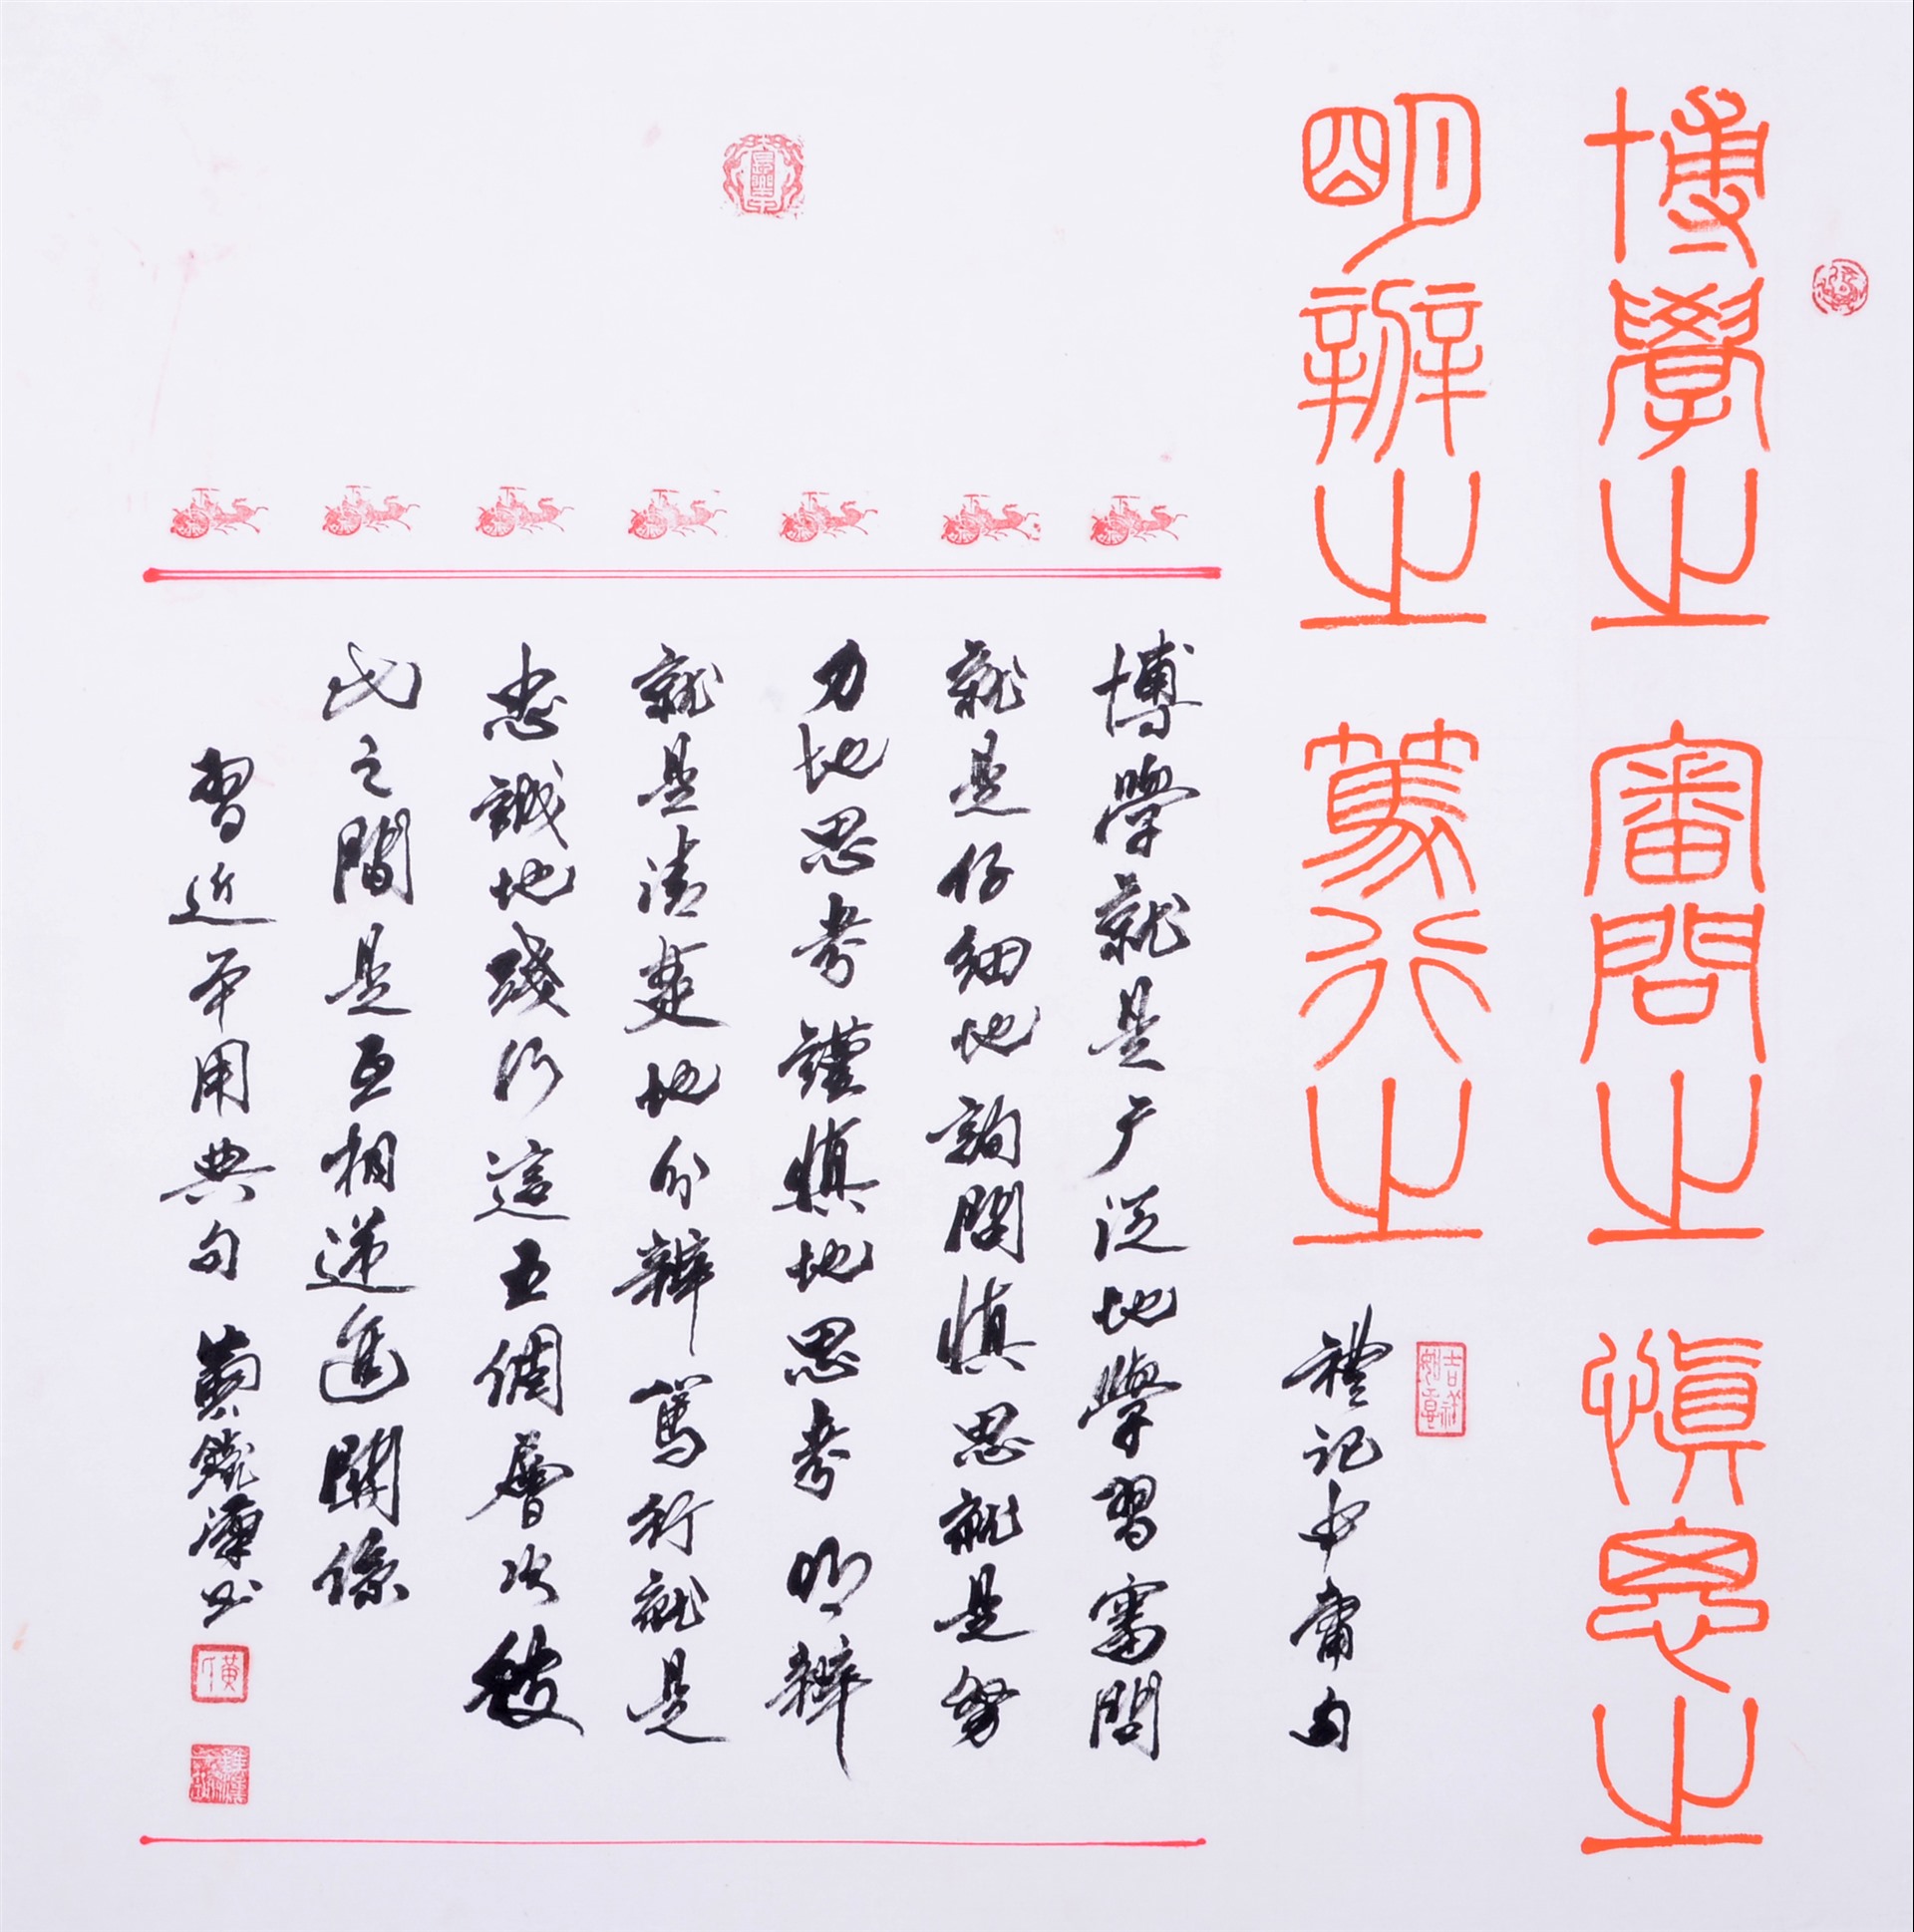 博學之審問之慎思之
明辨之篤行之
禮記中庸句
吉祥
博學就是广泛地學習審問
就是仔細地詢問慎思就是努
力地思考謹慎地思考明辨
就是清楚地分辨篤行就是
忠誠地踐行這五個層次彼
此之間是互相递進關係
習近平用典句 黄鐵漢书
黄